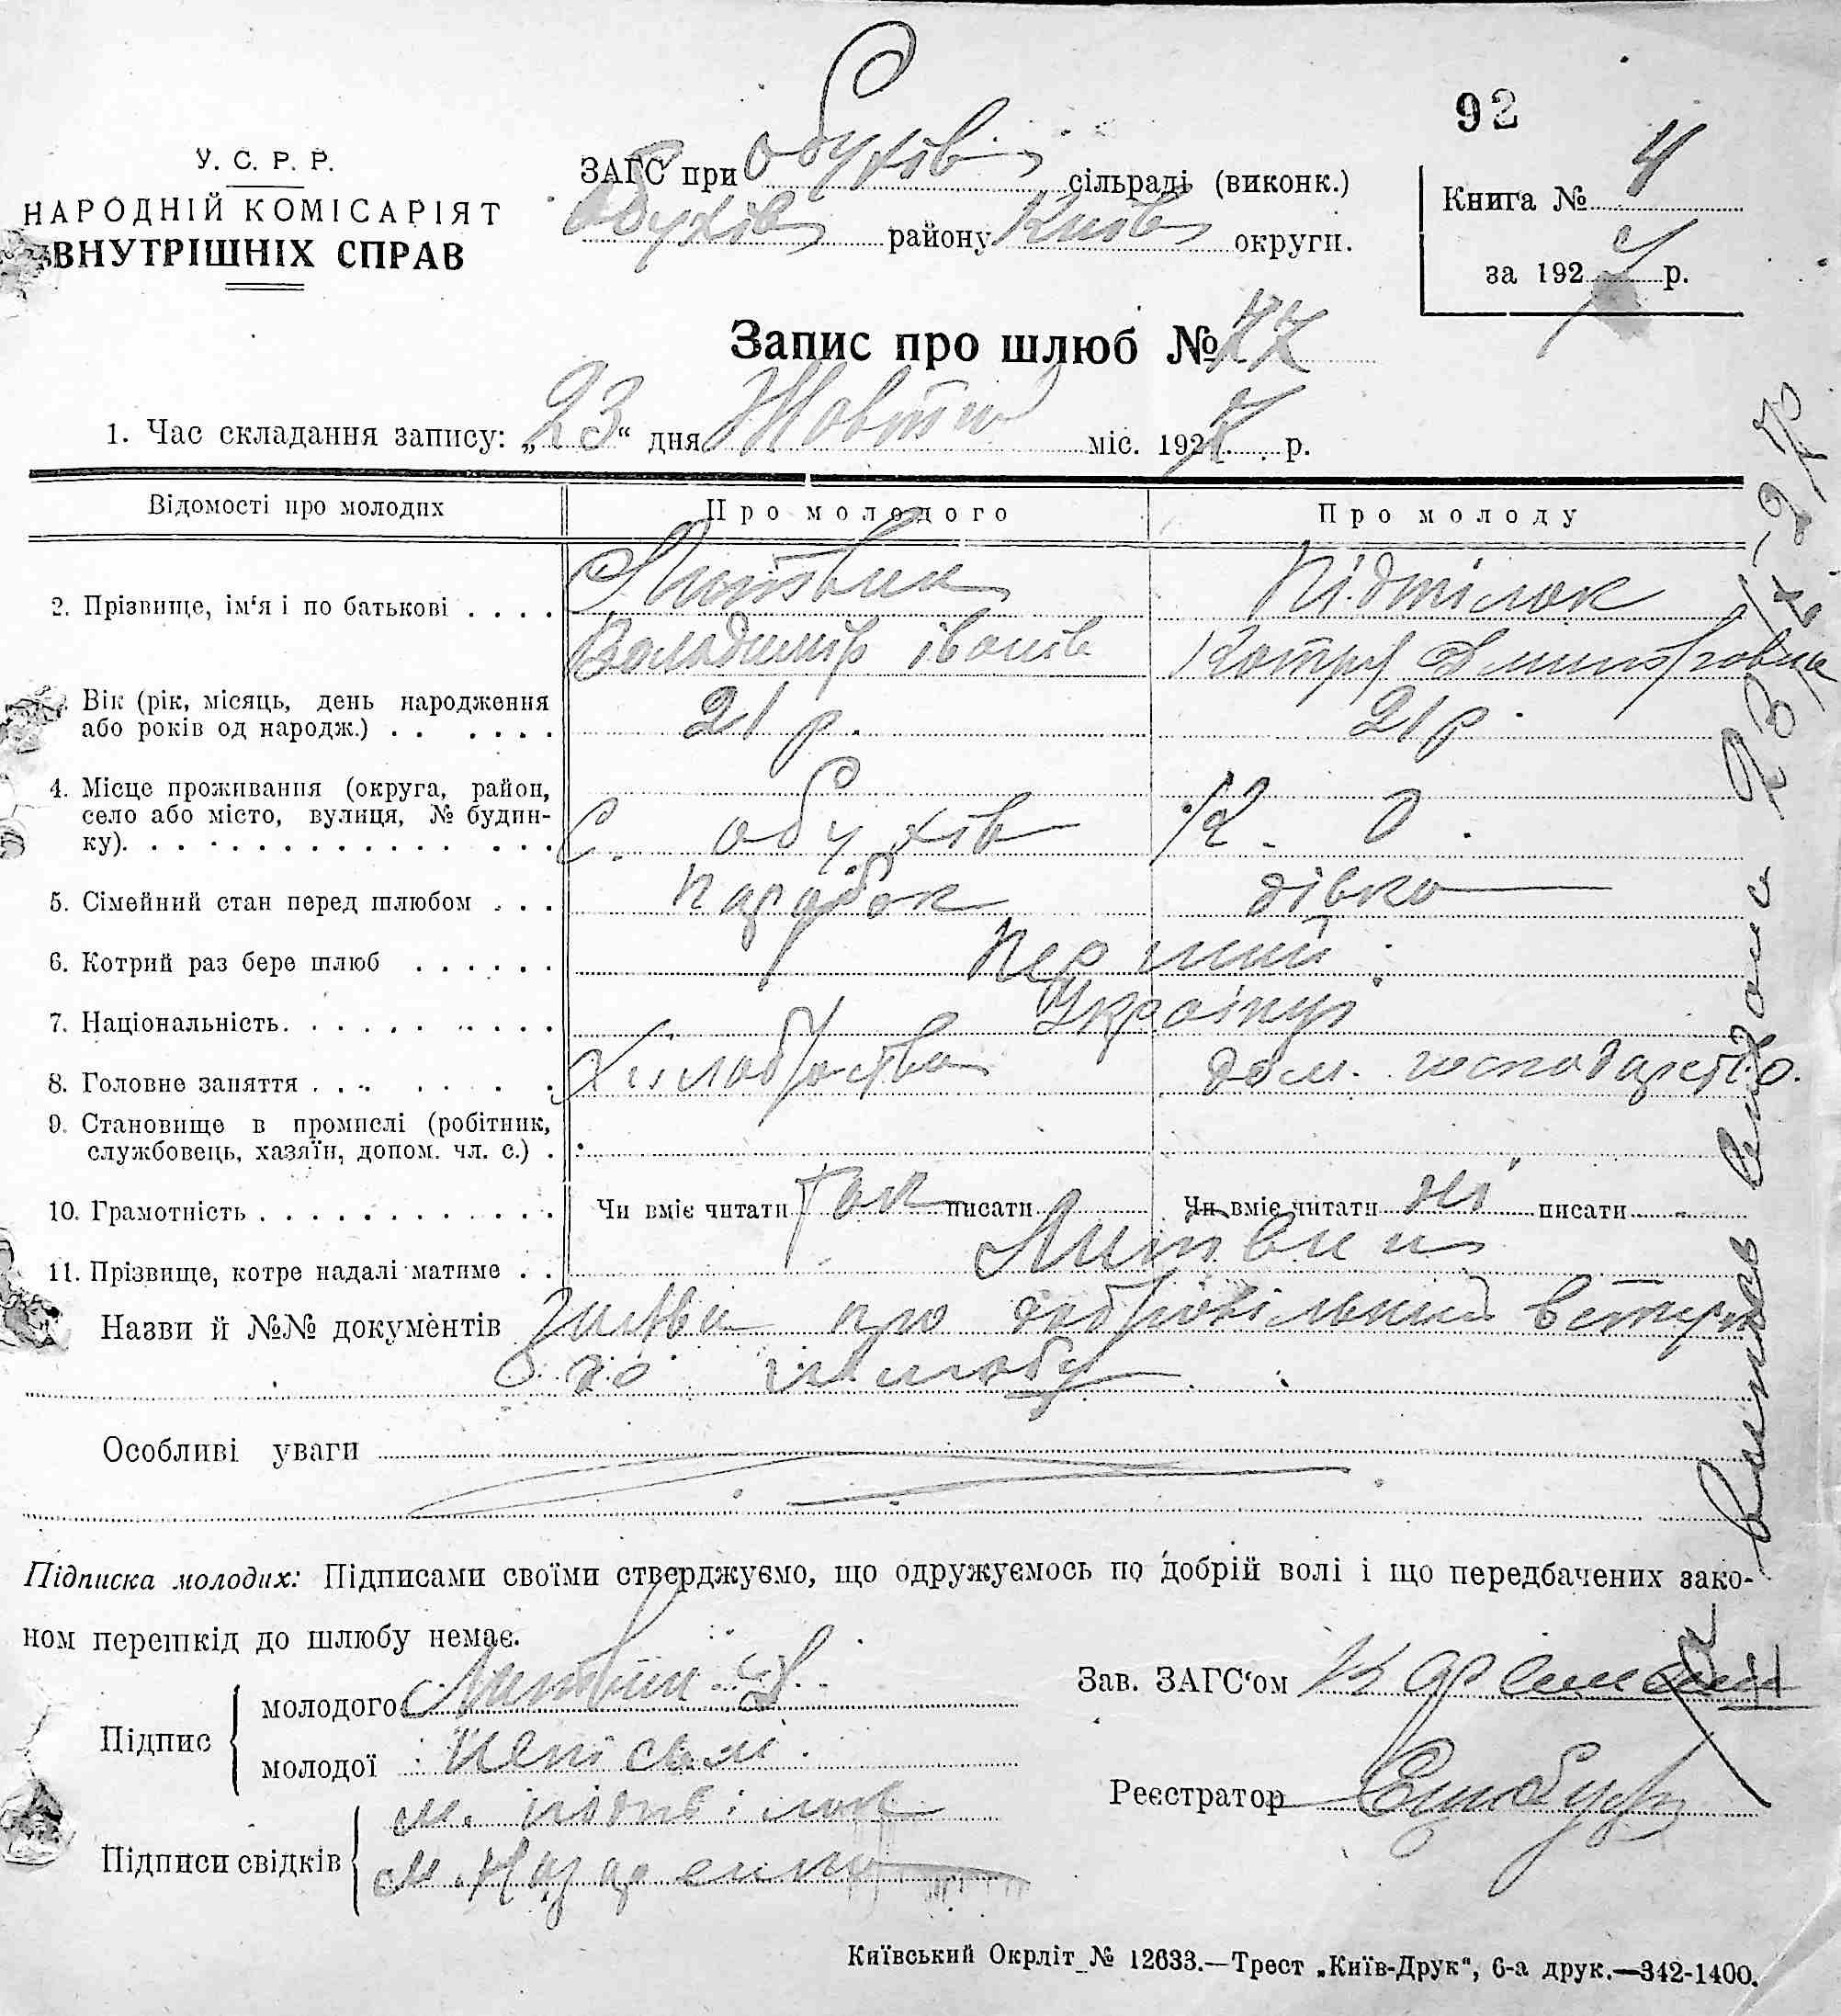 92
У. С. Р. Р.
НАРОДНІЙ КОМІСАРІЯТ
ВНУТРІШНІХ СПРАВ
ЗАГС при Обухів сільраді (виконк.)
Обухів району Київ округи.
Книга № 4
за 1927 р.
Запис про шлюб № 77
1. Час складання запису: „23“ дня Жовтня міс. 1927 р.
Відомості про молодих Про молодого Про молоду
2. Прізвище, ім‘я і по батькові . . . . Литвин Підтілок
Володимір Іванів
Вік (рік, місяць, день народження
або років од народж.) . . . . . . 21 р. 21 р.
4. Місце проживання (округа, район,
село або місто, вулиця, № будин-
ку). . . . . . . . . . . . . . . . С. Обухів
5. Сімейний стан перед шлюбом . . . Парубок дівка
6. Котрий раз бере шлюб . . . . . . Перший
7. Національність. . . . . . . . . . Українці
8. Головне заняття . . . . . . . . Хліборобство дом. господарство.
9. Становище в промислі (робітник,
службовець, хазяїн, допом. чл. с.) .
10. Грамотність . . . . . . . . . . . . Чи вміє читати так писати Чи вміє читати ні писати -
11. Прізвище, котре надалі матиме . . Литвин
Назви й №№ документів Заява про добровільний вступ
до шлюбу
Особливі уваги
Підписка молодих: Підписами своїми стверджуємо, що одружуємось по добрій волі і що передбачених зако-
ном перешкід до шлюбу немає.
Підпис молодого Литвин В.
молодої неписьм.
Підписи свідків М. Підтілок
М. Назаренко
Зав. ЗАГС‘ом
Реєстратор
Київський Окрліт № 12633.—Трест „Київ-Друк“, 6-а друк.—342-1400.